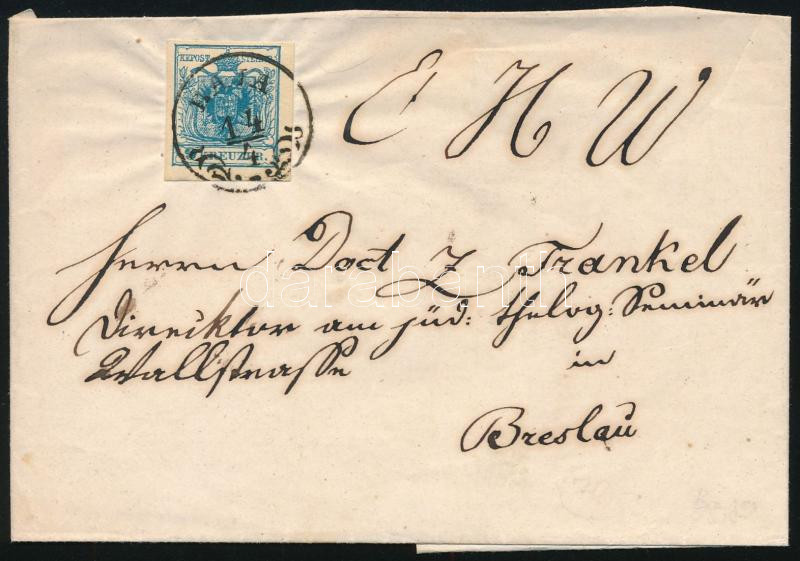 KKPOST-STEMPEL
KREUZER
BAJA
14
4
E H W
Herrn Doct Z Frankel
Direcktor am jüd: thelog: Seminär
Wallstrasse in
Breslau
darabanth